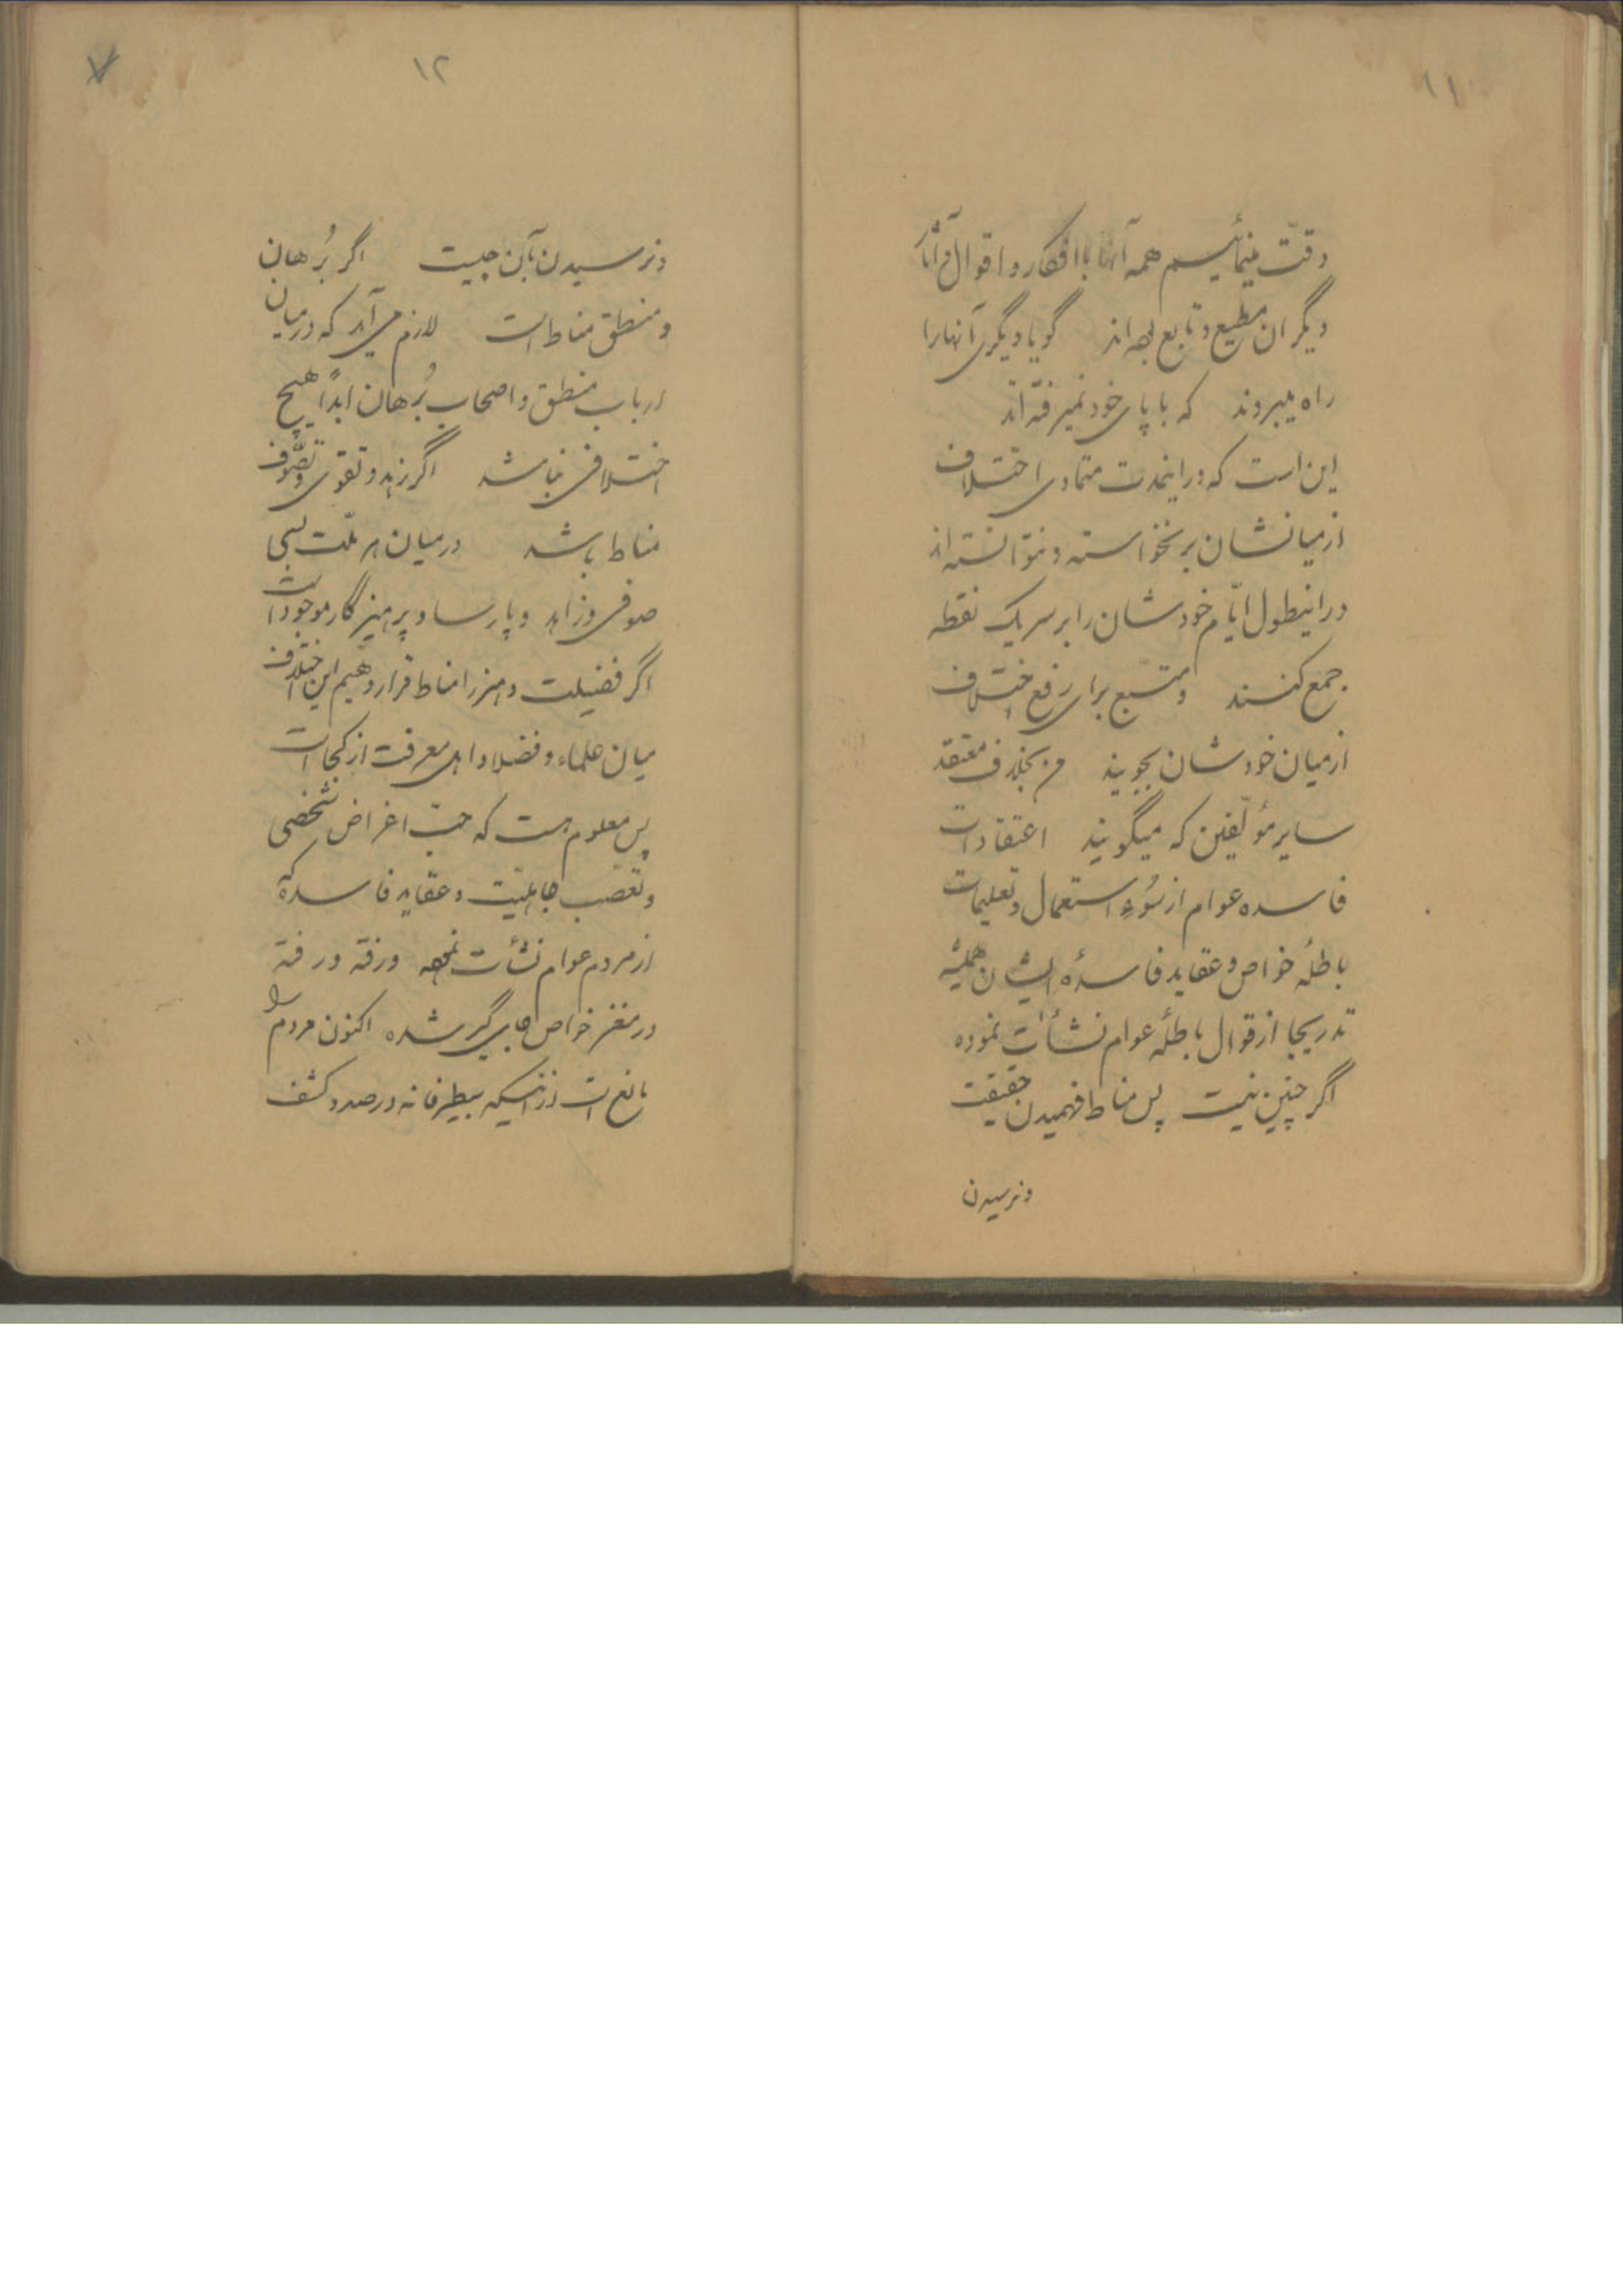 ۱۱
دقّت مینمائیم همه آنها با افکار و اقوال و آثار
دیگران مطیع و تابع بوده‌اند گویا دیگری آنها را
راه میبروند که با پای خود نمیرفته‌اند
این است که در اینمدت متمادی اختلاف
از میانشان برنخواسته و نتوانسته‌اند
در اینطول ایّام خودشان را بر سر یک نقطه
جمع کنند و متّبع برای رفع اختلاف
از میان خودشان بجویند من بخلاف معتقد
سایر مؤلّفین که میگویند اعتقادات
فاسده عوام از سُوءِ استعمال و تعلیمات
باطلهٔ خواص و عقاید فاسدهٔ ایشان همیشه
تدریجا از قوال باطلهٔ عوام نشأت نموده
اگر چنین نیست پس مناط فهمیدن حقیقت
ونرسیدن
۱۲
ونرسیدن بآن چیست اگر بُرهان
و منطق مناط است لازم می‌آید که در میان
ارباب منطق و اصحاب بُرهان ابداً هیچ
اختلافی نباشد اگر زهد و تقوی و تصّوف
مناط باشد در میان هر ملّت بسی
صوفی و زاهد و پارسا و پرهیزگار موجود است
اگر فضیلت و هنر را مناط قرار دهیم این اختلاف
میان علماء و فضلا و اهل معرفت از کجا است
پس معلوم است که حبّ اغراض شخصی
و تعصّب جاهلیّت و عقاید فاسده که
از مردم عوام نشأت نموده و رفته رفته
در مغز خواص جای گیر شده اکنون مردم را
مانع است از اینکه بیطرفانه در صدد کشف